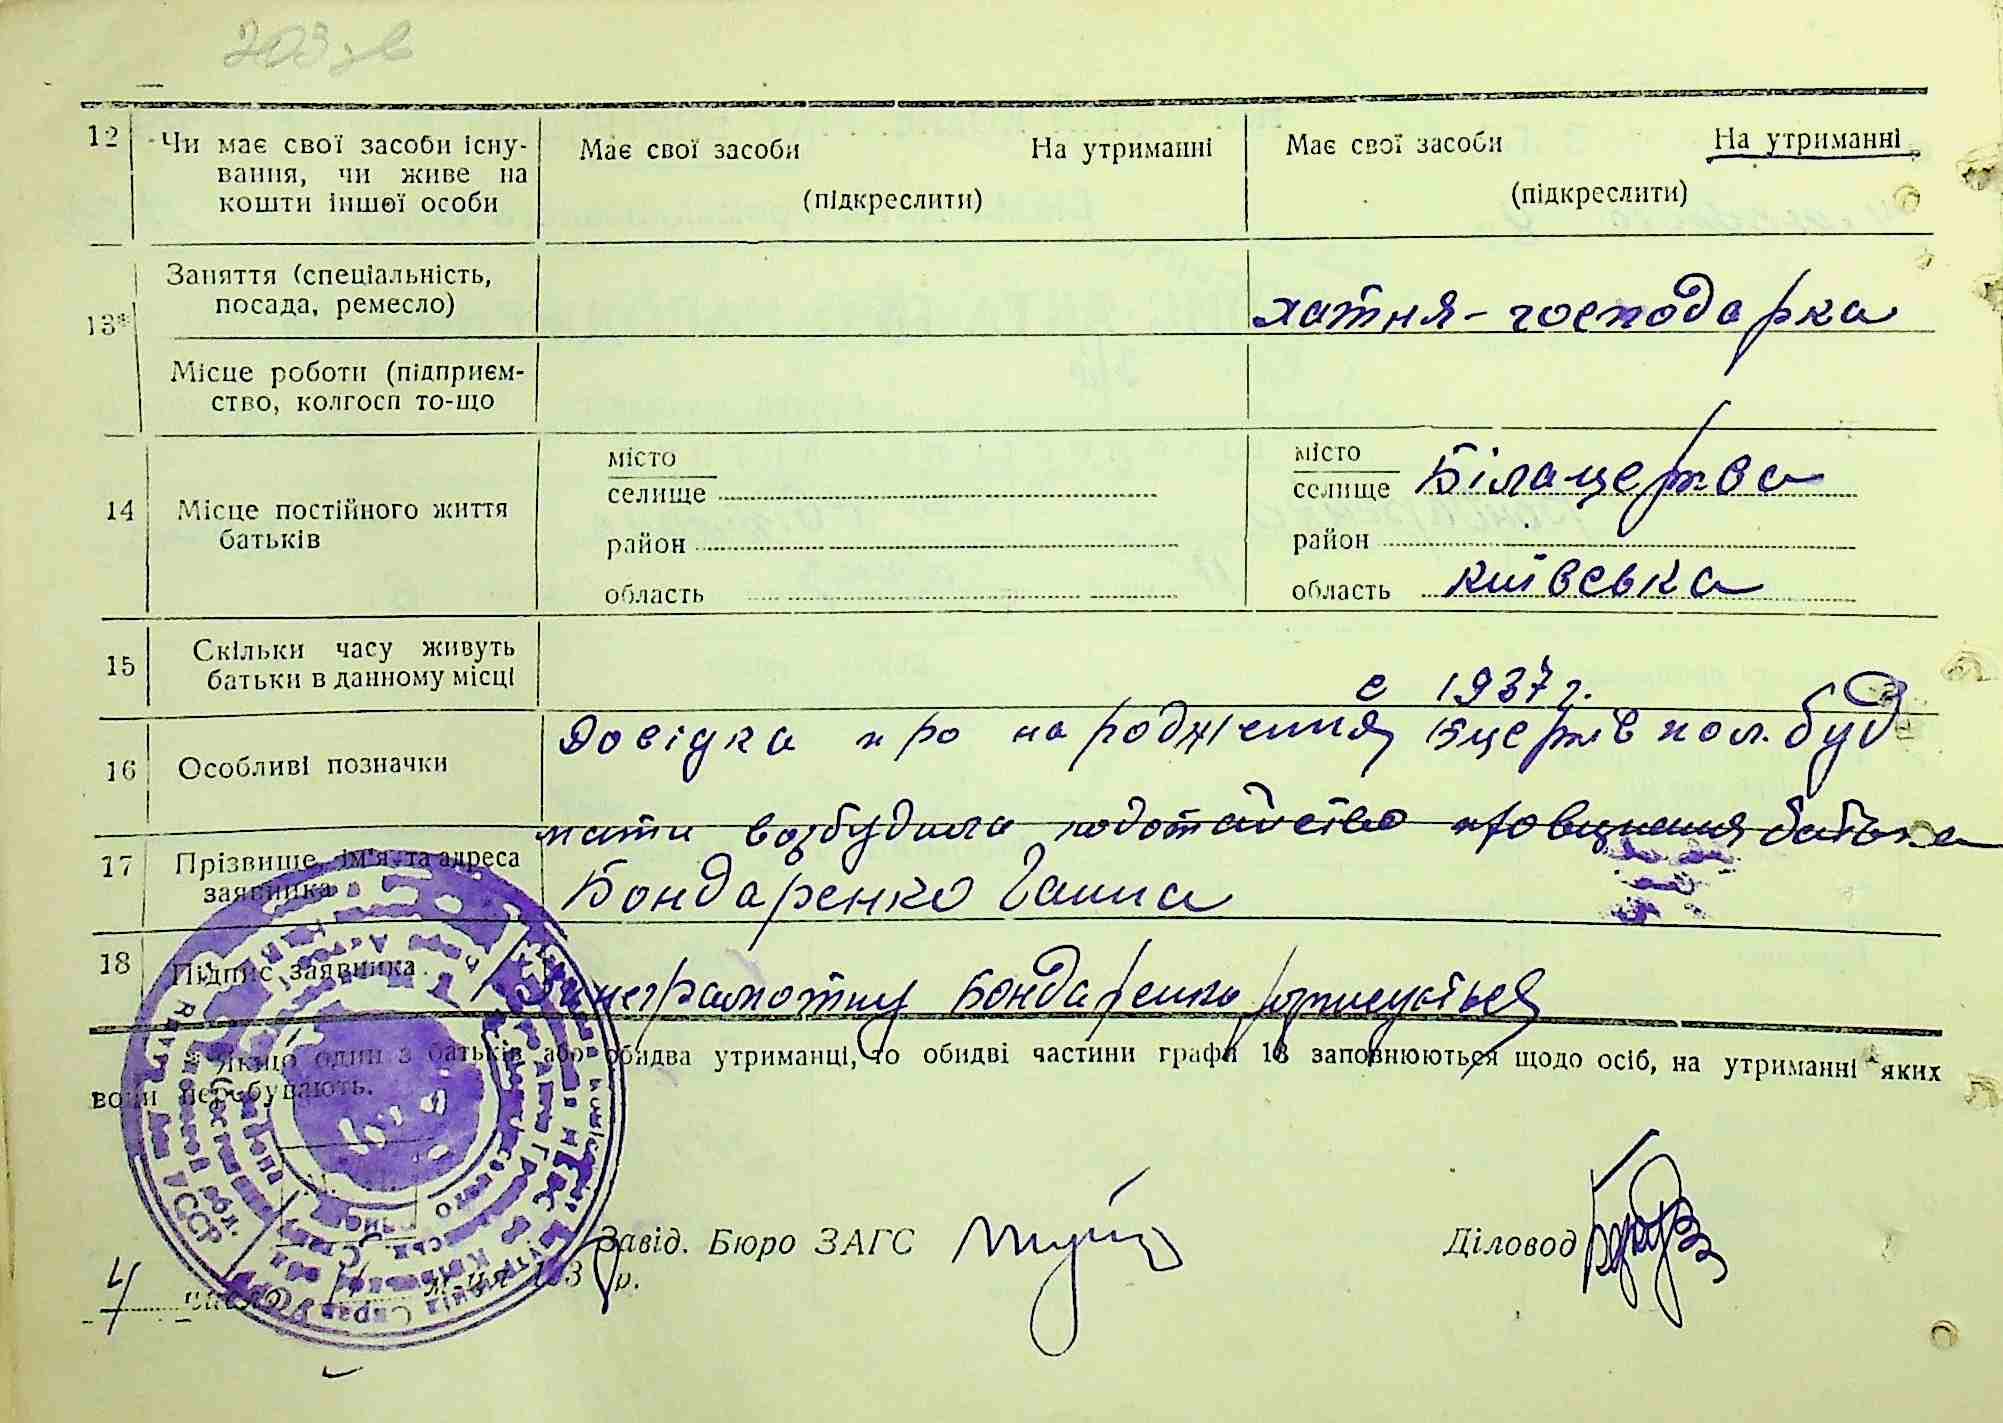 203 зв
12 Чи має свої засоби існу-
вання, чи живе на
кошти іншої особи
Має свої засоби На утриманні
(підкреслити)
Має свої засоби На утриманні
(підкреслити)
13* Заняття (спеціальність,
посада, ремесло)
хатня-господарка
Місце роботи (підприєм-
ство, колгосп то-що
14 Місце постійного життя
батьків
місто
селище
район
область
місто
селище Білацерква
район
область київська
15 Скільки часу живуть
батьки в данному місці
с 1937 г.
16 Особливі позначки
Довідка про народження Бцерків пол. буд
мати возбудила ходотайство про
17 Прізвище, ім'я та адреса
заявника
Бондаренко Ганна
18 Підпис заявника
За неграмотну Бондаренко
Якщо один з батьків або обидва утриманці, то обидві частини графи 13 заповнюються щодо осіб, на утриманні яких
вони перебувають.
Завід. Бюро ЗАГС
Діловод
4 числа м-ця 193 р.